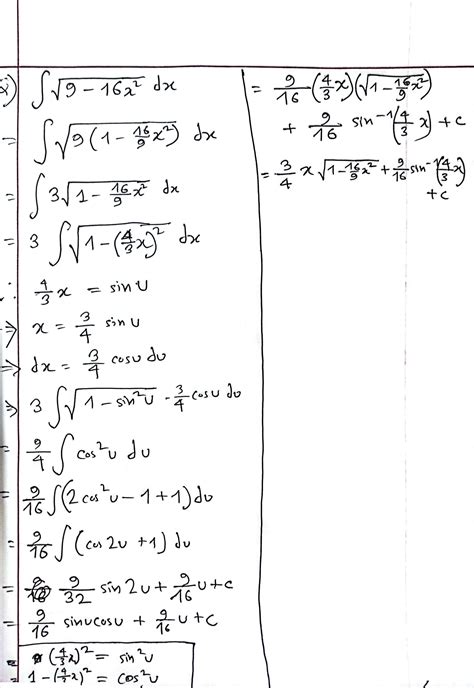 ∫√(9 - 16x²) dx
= ∫√(9(1 - 16/9 x²)) dx
= ∫3√(1 - 16/9 x²) dx
= 3 ∫√(1 - (4/3 x)²) dx
∴ 4/3 x = sin u
⇒ x = 3/4 sin u
⇒ dx = 3/4 cosu du
⇒ 3 ∫√(1 - sin²u) · 3/4 cosu du
= 9/4 ∫ cos²u du
= 9/16 ∫(2cos²u - 1 + 1) du
= 9/16 ∫(cos 2u + 1) du
= 9/32 sin 2u + 9/16 u + c
= 9/16 sinucosu + 9/16 u + c
= (4/3 x)² = sin²u
= 1 - (4/3 x)² = cos²u
= 9/16 (4/3 x)(√(1 - 16/9 x²))
+ 9/16 sin⁻¹(4/3 x) + c
= 3/4 x √(1 - 16/9 x²) + 9/16 sin⁻¹(4/3 x)
+ c